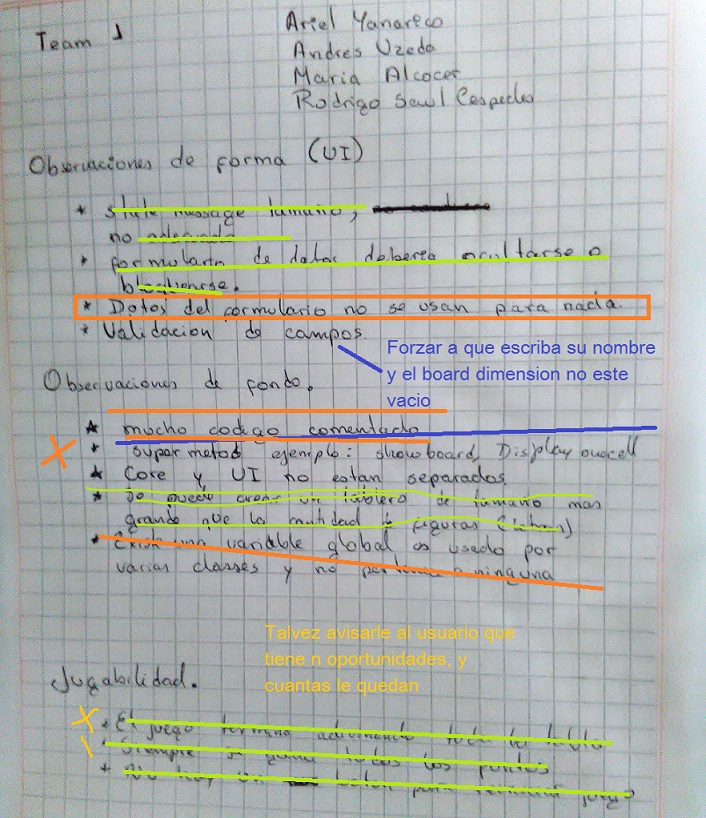 Team 1
Ariel Yanarico
Andres Uzeda
Maria Alcocer
Rodrigo Saul Cespedes
Observaciones de forma (UI)
* state message tamaño,
no adecuado
* formulario de datos deberia ocultarse o
bloquearse.
* Datos del formulario no se usan para nada.
* Validacion de campos.
Forzar a que escriba su nombre
y el board dimension no este
vacio
Observaciones de fondo.
* mucho codigo comentado
* super metod ejemplo: showboard, Display
* Core y UI no estan separados.
* Se puede crear un tablero de tamaño mas
grande que la mitad de figuras
* Existe una variable global es usado por
varias classes y no pertenece a ninguna
Talvez avisarle al usuario que
tiene n oportunidades, y
cuantas le quedan
Jugabilidad.
* El juego termina adivinando toda la tabla
* Siempre se gana todos los puntos
* No hay un boton para terminar juego